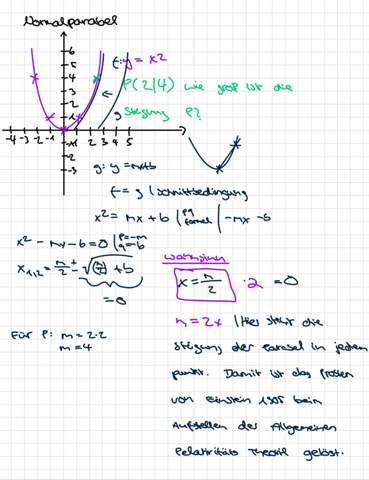 Normalparabel
6
5
4
3
2
1
-4 -3 -2 -1 1 2 3 4 5
-2
-3
f: y = x²
P(2/4) wie groß ist die
Steigung P?
g
g: y = mx+b
f = g | Schnittbedingung
x² = mx + b | pq formel | -mx -b
x² - mx - b = 0 | p=-m q=-b
x₁,₂ = m/2 ± √((m/2)² + b)
= 0
x = m/2 · 2 = 0
m = 2x | Hier steht die
Steigung der Parabel in jedem
Punkt. Damit ist das Problem
von Einstein 1905 beim
Aufstellen der Allgemeinen
Relativitäts Theorie gelöst.
Für P: m = 2·2
m = 4